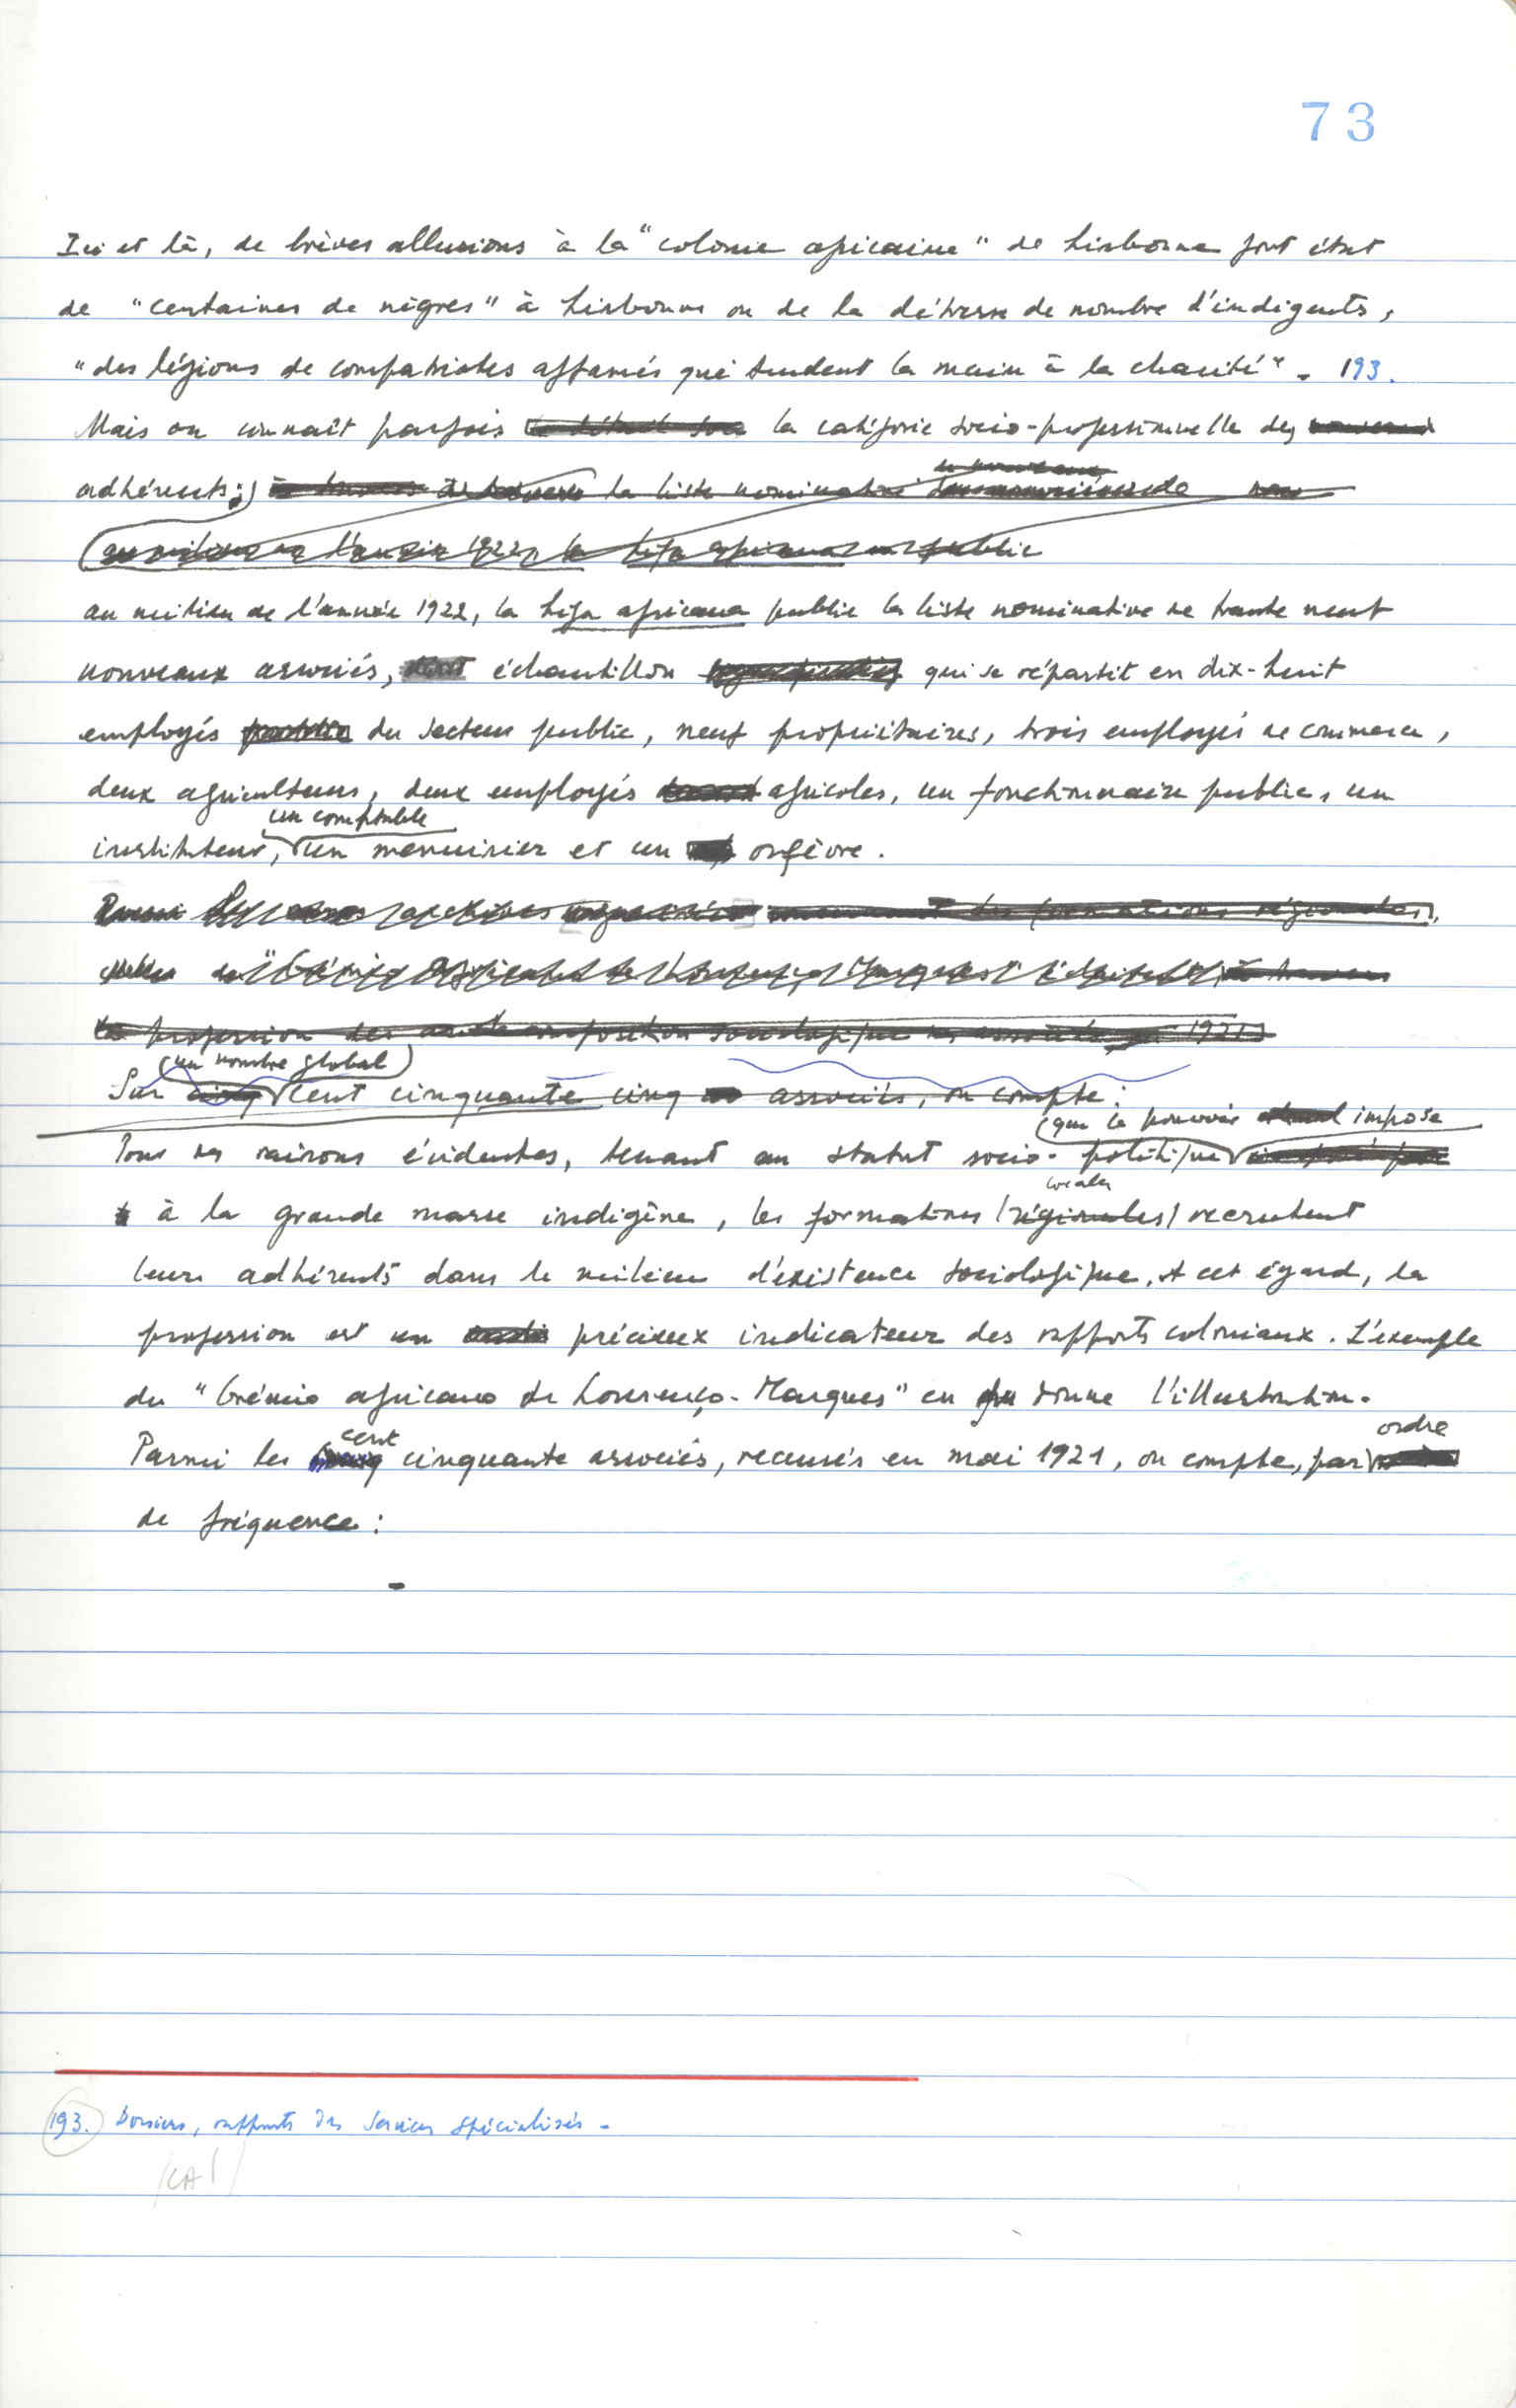 73
Ici et là, de brèves allusions à la "colonie africaine" de Lisbonne font état
de "centaines de nègres" à Lisbonne ou de la détresse de nombre d'indigents,
"des légions de compatriotes affamés qui tendent la main à la charité". 193.
Mais on connaît parfois la catégorie socio-professionnelle des
adhérents: la liste nominative
au milieu de l'année 1922, la Liga africana publie
au milieu de l'année 1922, la Liga africana publie la liste nominative de trente neuf
nouveaux associés, échantillon qui se répartit en dix-huit
employés du secteur public, neuf propriétaires, trois employés de commerce,
deux agriculteurs, deux employés agricoles, un fonctionnaire public, un
un comptable
instituteur, un menuisier et un orfèvre.
des formations régionales,
du "Grémio Africano de Lourenço Marques"
la profession des composition sociologique des associés 1921
(un nombre global)
Sur cinq cent cinquante cinq associés, on compte:
(que le pouvoir impose
Pour des raisons évidentes, tenant au statut socio-politique
locales
à la grande masse indigène, les formations (régionales) recrutent
leurs adhérents dans le milieu d'existence sociologique. A cet égard, la
profession est un précieux indicateur des rapports coloniaux. L'exemple
du "Grémio africano de Lourenço-Marques" en donne l'illustration.
cent
ordre
Parmi les cinquante associés, recensés en mai 1921, on compte, par
de fréquence:
193. Dossiers, rapports des services spécialisés.
(CA)